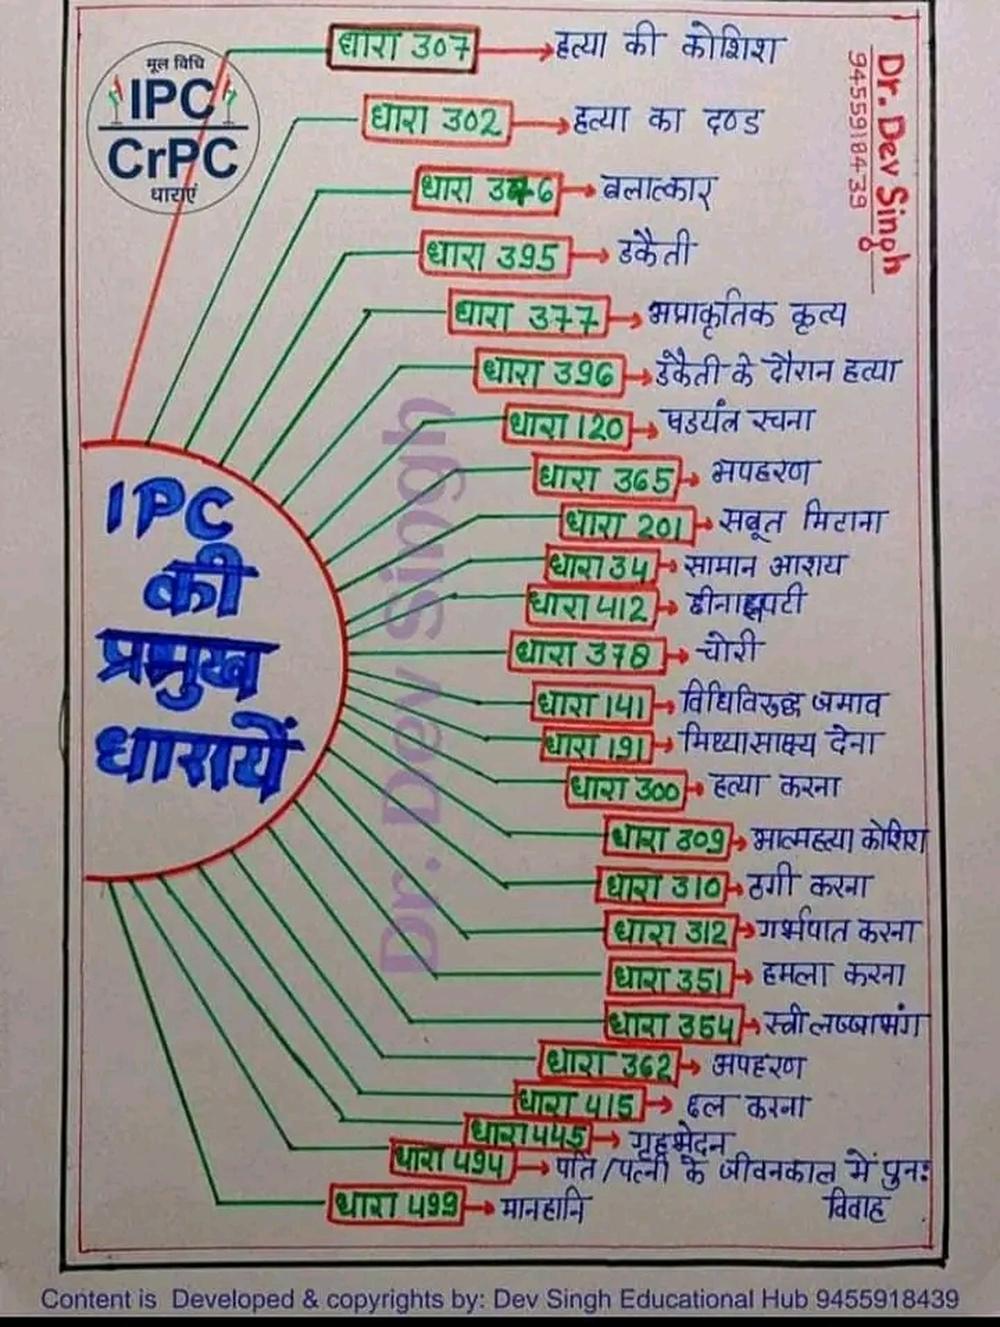 मूल विधि
IPC
CrPC
धाराएं
Dr. Dev Singh
9455918439
धारा 307 → हत्या की कोशिश
धारा 302 → हत्या का दण्ड
धारा 376 → बलात्कार
धारा 395 → डकैती
धारा 377 → अप्राकृतिक कृत्य
धारा 396 → डकैती के दौरान हत्या
धारा 120 → षडयंत्र रचना
धारा 365 → अपहरण
धारा 201 → सबूत मिटाना
धारा 34 → सामान आशय
धारा 412 → छीनाझपटी
धारा 378 → चोरी
धारा 141 → विधिविरुद्ध जमाव
धारा 191 → मिथ्यासाक्ष्य देना
धारा 300 → हत्या करना
धारा 309 → आत्महत्या कोशिश
धारा 310 → ठगी करना
धारा 312 → गर्भपात करना
धारा 351 → हमला करना
धारा 354 → स्त्री लज्जाभंग
धारा 362 → अपहरण
धारा 415 → छल करना
धारा 445 → गृहभेदन
धारा 494 → पति/पत्नी के जीवनकाल में पुनः
विवाह
धारा 499 → मानहानि
IPC
की
प्रमुख
धारायें
Dr. Dev Singh
Content is Developed & copyrights by: Dev Singh Educational Hub 9455918439